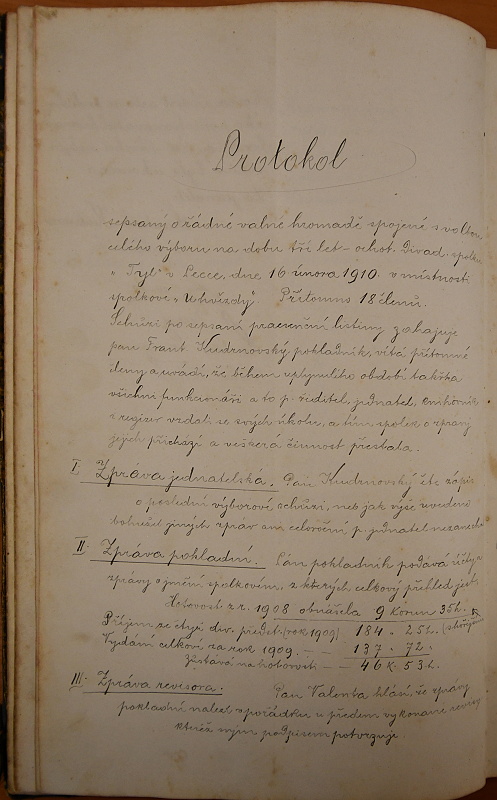 Protokol
sepsaný o řádné valné hromadě spojené s volbou
celého výboru na dobu tří let – ochot. Divad. spolku
„Tyl" v Lecce, dne 16 února 1910. v místnosti
spolkové „U hvězdy". Přítomno 18 členů.
Schůzi po sepsaní praesenční listiny zahajuje
pan Frant Kudrnovský pokladník, vítá přítomné
členy a uvádí, že během uplynulého období takřka
všichni funkcionáři a to p. ředitel, jednatel, knihovník
a regisér vzdali se svých úkolů, a tím spolek o zprávy
jejich přichází a veškerá činnost přestala.
I. Zpráva jednatelská. Pan Kudrnovský čte zápis
o poslední výborové schůzi, neb jak výše uvedeno
bohužel jiných zpráv ani celoroční p. jednatel nezanechal
II. Zpráva pokladní. Pan pokladník podává účty a
zprávy o jmění spolkovém, z kterých celkový přehled jest:
Hotovost z r. 1908 obnášela 9 Korun 35 h.
Příjem ze čtyř div. předst. (rok 1909) 184 . 25 h.
Vydání celkové za rok 1909. – – 137 . 72.
Zůstává na hotovosti – – 46 K. 53 h.
III. Zpráva revisora. Pan Valenta hlásí, že zprávy
pokladní nalezl v pořádku a předem vykonané revisy
kteréž svým podpisem potvrzuje.